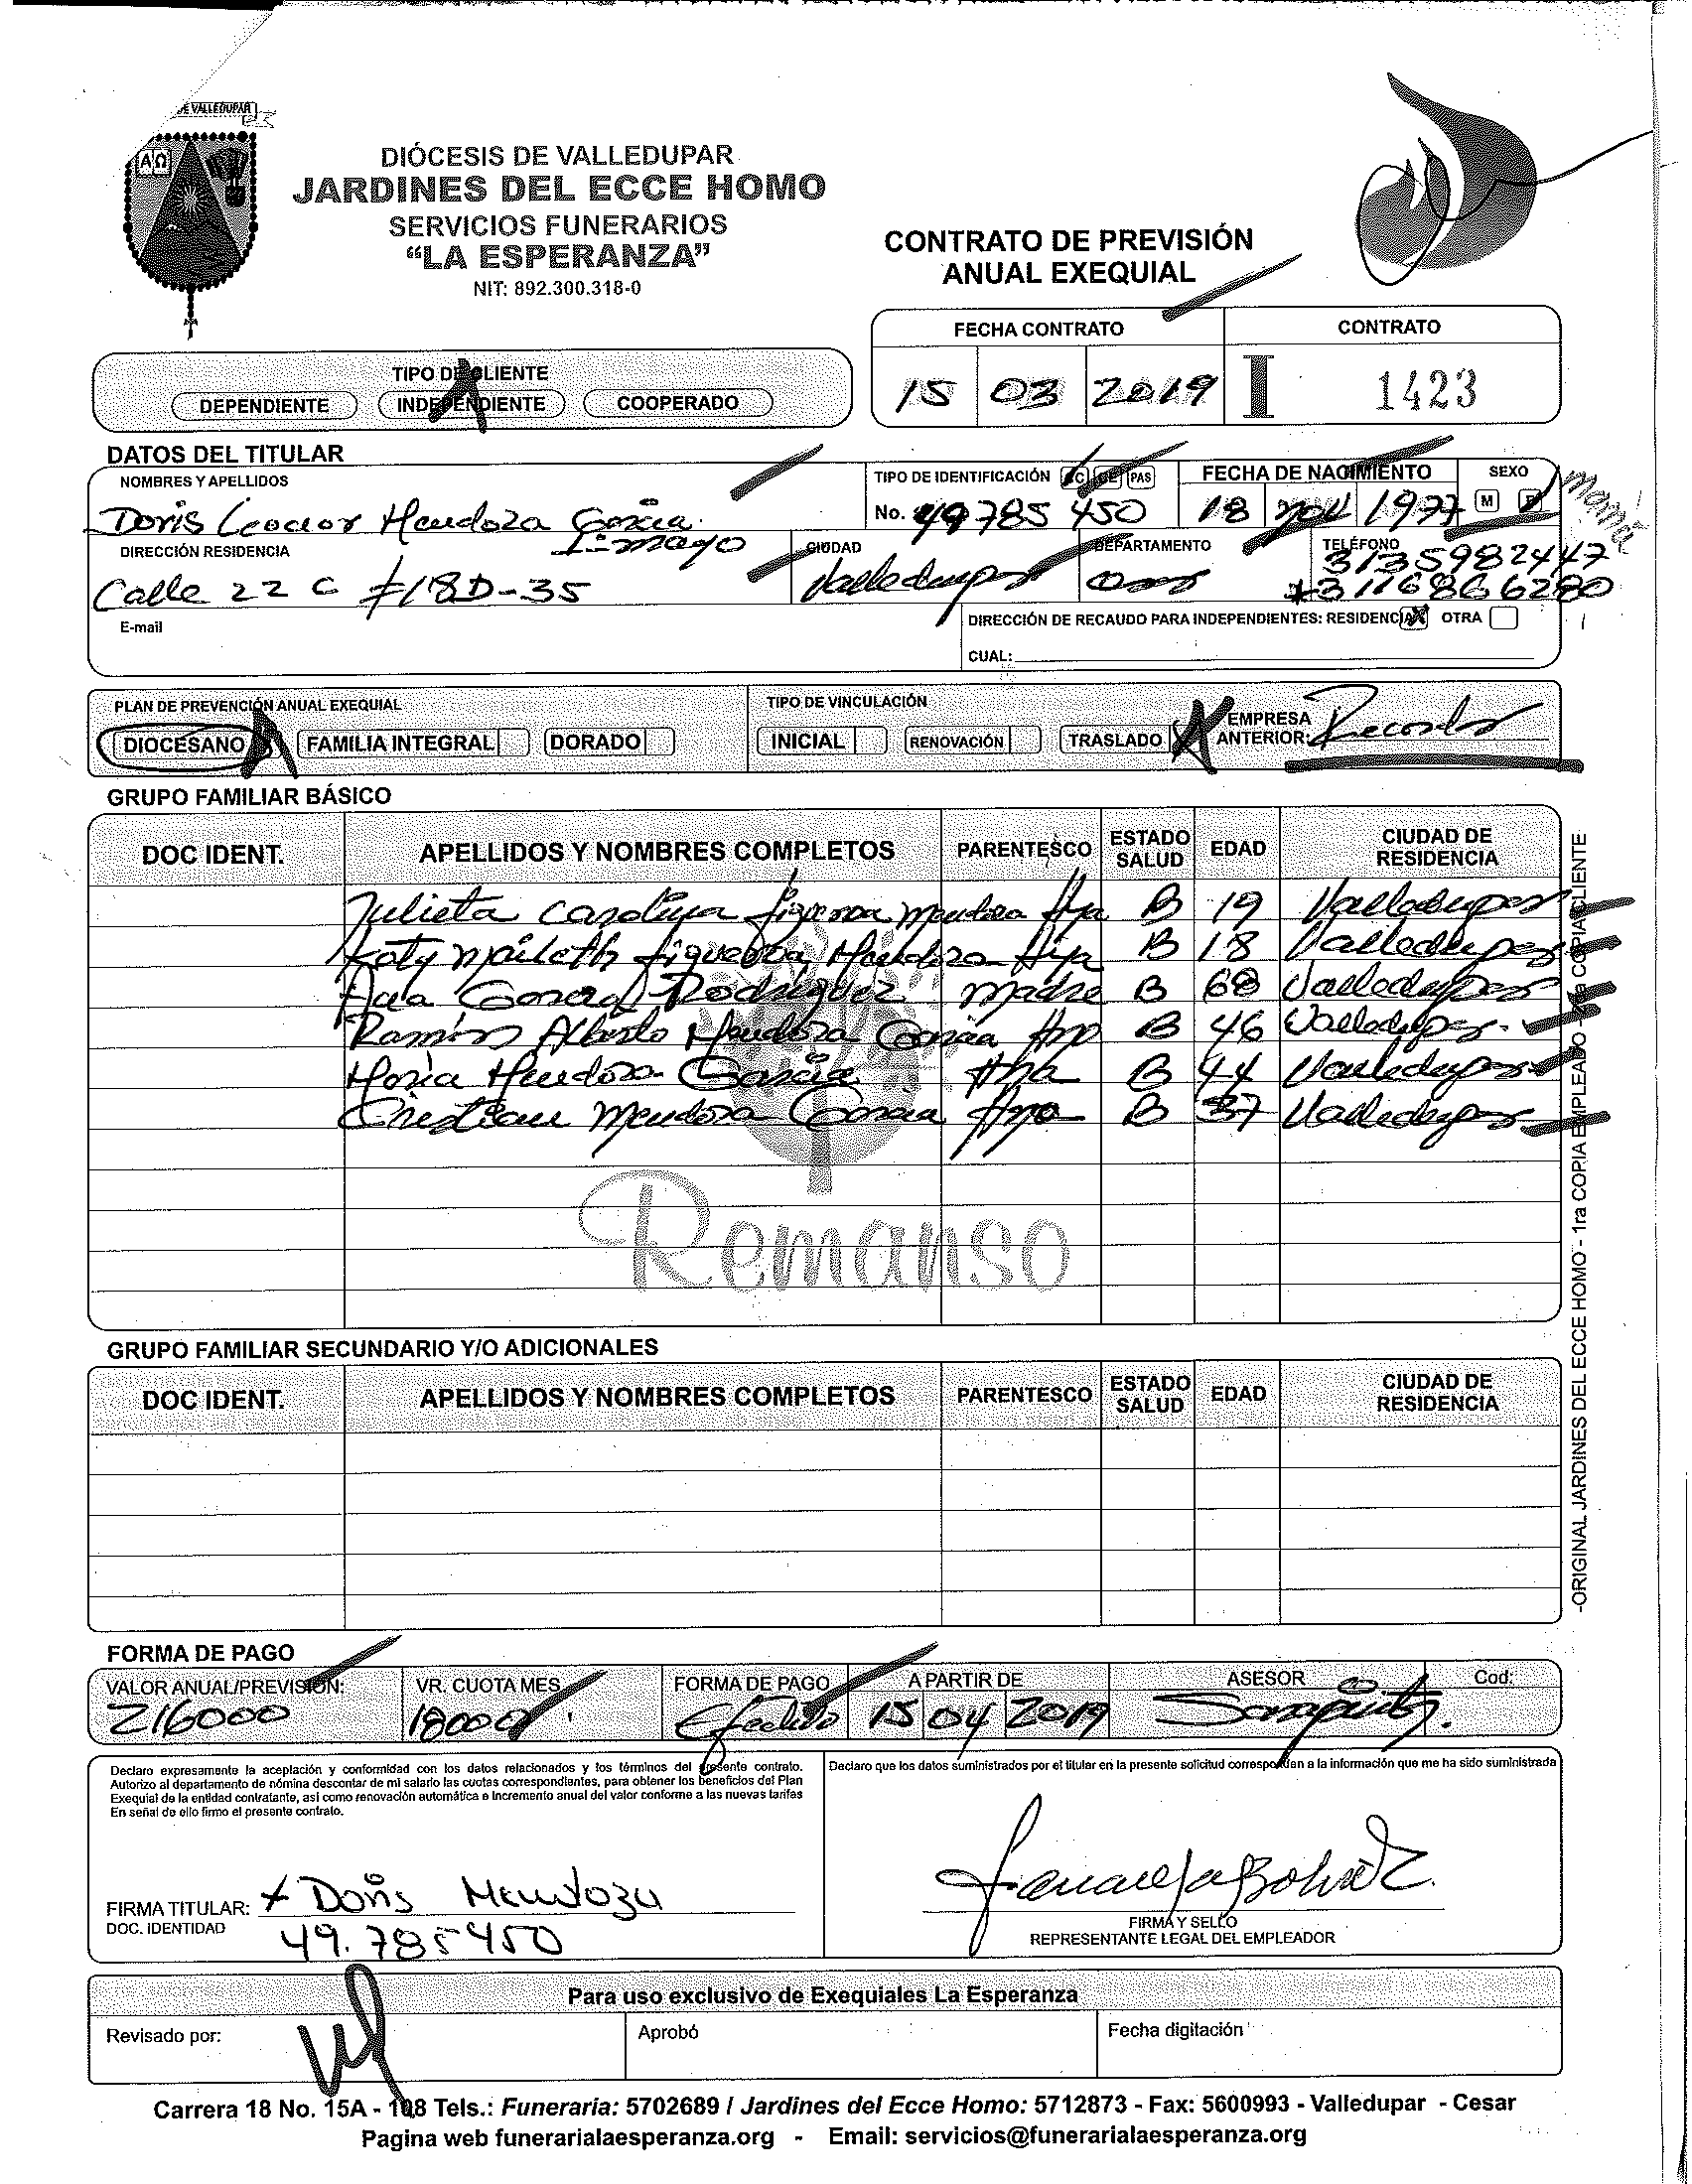 DE VALLEDUPAR
ΑΩ
DIÓCESIS DE VALLEDUPAR
JARDINES DEL ECCE HOMO
SERVICIOS FUNERARIOS
“LA ESPERANZA”
NIT: 892.300.318-0
CONTRATO DE PREVISIÓN
ANUAL EXEQUIAL
FECHA CONTRATO CONTRATO
15 03 2019 I 1423
TIPO DE CLIENTE
DEPENDIENTE INDEPENDIENTE COOPERADO
DATOS DEL TITULAR
NOMBRES Y APELLIDOS TIPO DE IDENTIFICACIÓN CC CE PAS FECHA DE NACIMIENTO SEXO
Doris Leonor Mendoza García No. 49785450 18 nov 1977 M F mamá
DIRECCIÓN RESIDENCIA 1= mayo CIUDAD DEPARTAMENTO TELÉFONO
Calle 22 C #18D-35 Valledupar 3135982447
3116866280
E-mail DIRECCIÓN DE RECAUDO PARA INDEPENDIENTES: RESIDENCIA X OTRA
CUAL:
PLAN DE PREVENCIÓN ANUAL EXEQUIAL TIPO DE VINCULACIÓN
DIOCESANO FAMILIA INTEGRAL DORADO INICIAL RENOVACIÓN TRASLADO X EMPRESA ANTERIOR: Recordar
GRUPO FAMILIAR BÁSICO
DOC IDENT. APELLIDOS Y NOMBRES COMPLETOS PARENTESCO ESTADO SALUD EDAD CIUDAD DE RESIDENCIA
Julieta Carolina Figueroa Mendoza Hja B 19 Valledupar
Katy Maileth Figueroa Mendoza Hija B 18 Valledupar
Ana Rodriguez madre B 68 Valledupar
Ramiro Alberto Mendoza García Hno B 46 Valledupar
Maria Mendoza García Hna B 44 Valledupar
Cristian Mendoza García Hno B 37 Valledupar
Remanso
GRUPO FAMILIAR SECUNDARIO Y/O ADICIONALES
DOC IDENT. APELLIDOS Y NOMBRES COMPLETOS PARENTESCO ESTADO SALUD EDAD CIUDAD DE RESIDENCIA
-ORIGINAL JARDINES DEL ECCE HOMO - 1ra COPIA EMPLEADO - COPIA CLIENTE
FORMA DE PAGO
VALOR ANUAL/PREVISIÓN: VR. CUOTA MES FORMA DE PAGO A PARTIR DE ASESOR Cod:
216000 18000 Efectivo 15 04 2019
Declaro expresamente la aceptación y conformidad con los datos relacionados y los términos del presente contrato.
Autorizo al departamento de nómina descontar de mi salario las cuotas correspondientes, para obtener los beneficios del Plan
Exequial de la entidad contratante, así como renovación automática e incremento anual del valor conforme a las nuevas tarifas
En señal de ello firmo el presente contrato.
Declaro que los datos suministrados por el titular en la presente solicitud corresponden a la información que me ha sido suministrada
FIRMA TITULAR: x Doris Mendoza
DOC. IDENTIDAD 49.785450
FIRMA Y SELLO
REPRESENTANTE LEGAL DEL EMPLEADOR
Para uso exclusivo de Exequiales La Esperanza
Revisado por: Aprobó Fecha digitación
Carrera 18 No. 15A - 108 Tels.: Funeraria: 5702689 / Jardines del Ecce Homo: 5712873 - Fax: 5600993 - Valledupar - Cesar
Pagina web funerarialaesperanza.org - Email: servicios@funerarialaesperanza.org